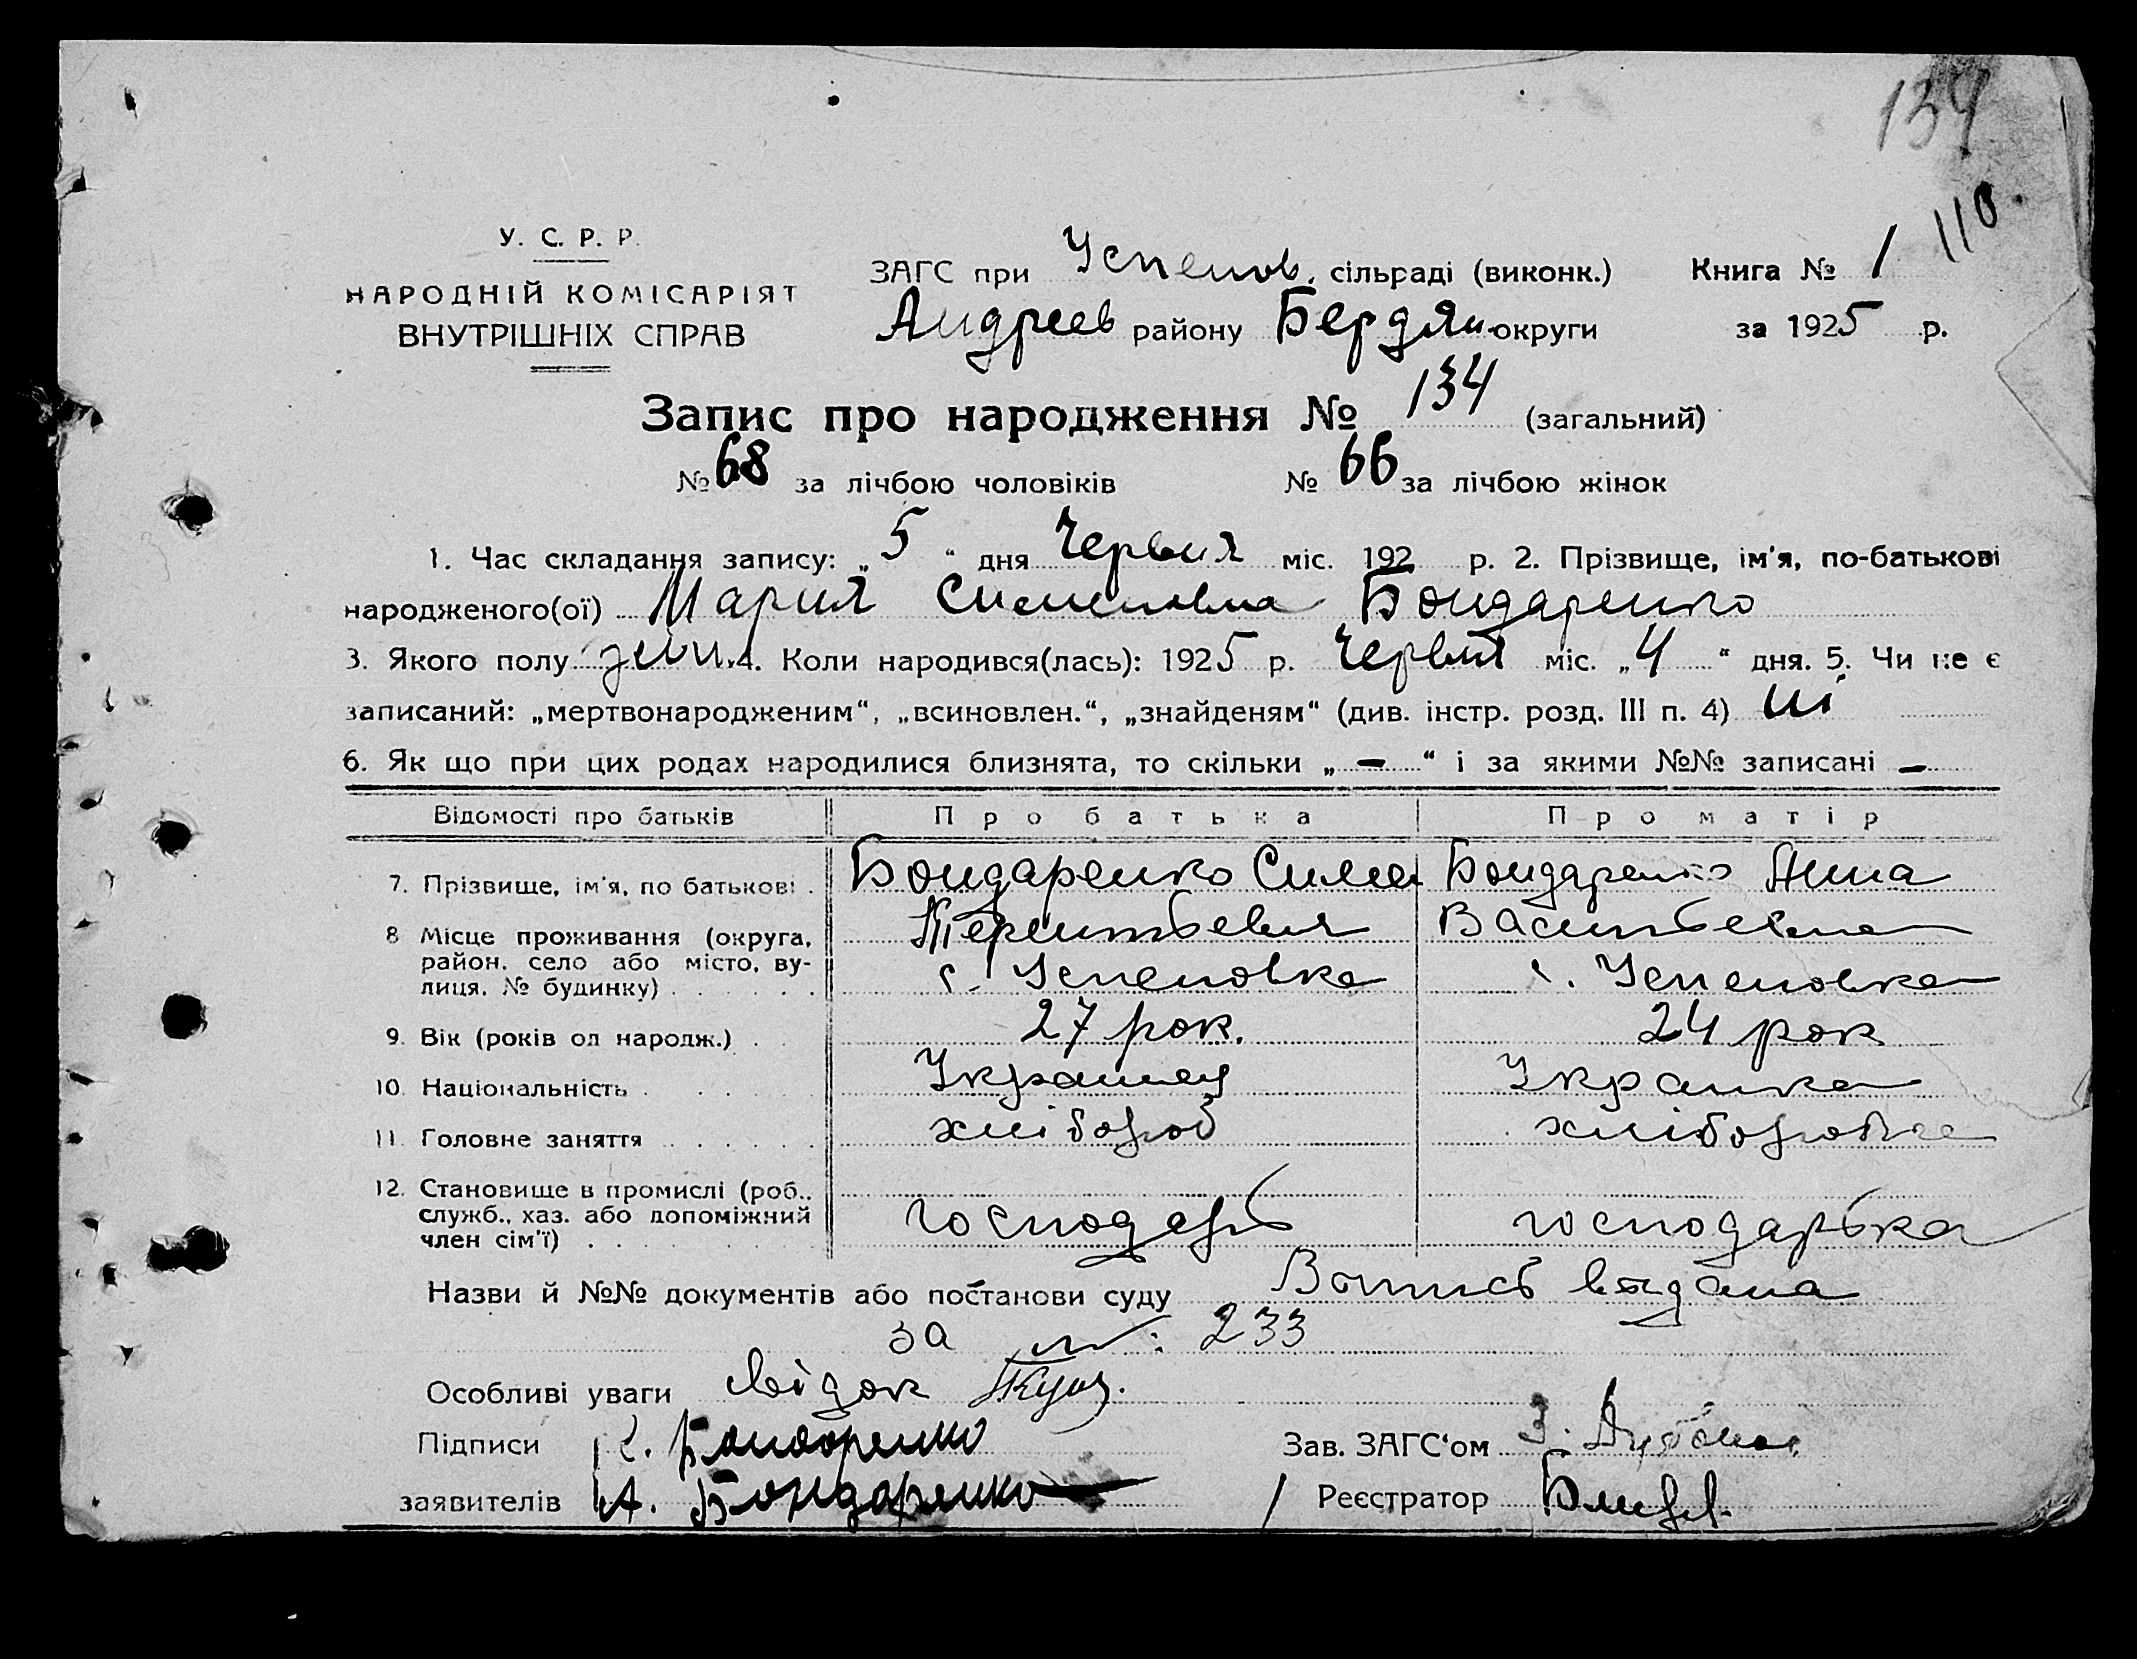 134
110
У. С. Р. Р.
НАРОДНІЙ КОМІСАРІЯТ
ВНУТРІШНІХ СПРАВ
ЗАГС при Успенов. сільраді (виконк.) Книга № 1
Андреев району Бердян. округи за 1925 р.
Запис про народження № 134 (загальний)
№ 68 за лічбою чоловіків № 66 за лічбою жінок
1. Час складання запису: „5“ дня Червня міс. 192 р. 2. Прізвище, ім'я, по-батькові
народженого(ої) Мария Сименовна Бондаренко
3. Якого полу жін. 4. Коли народився(лась): 1925 р. Червня міс. „4“ дня. 5. Чи не є
записаний: „мертвонародженим“, „всиновлен.“, „знайденям“ (див. інстр. розд. III п. 4) ні
6. Як що при цих родах народилися близнята, то скільки „—“ і за якими №№ записані —
Відомості про батьків Про батька Про матір
7. Прізвище, ім'я, по батькові . Бондаренко Симен Бондаренко Анна
8 Місце проживання (округа, Терентьевич Васильевна
район, село або місто, ву-
лиця, № будинку) . . . . . с. Успеновка с. Успеновка
9. Вік (років од народж.) . . 27 рок. 24 рок
10. Національність . . . . Украинец Украинка
11. Головне заняття . . . . . хлібороб хліборобка
12. Становище в промислі (роб.,
служб., хаз. або допоміжний господарь господарька
член сім'ї) . . . . .
Назви й №№ документів або постанови суду Випись видана
за №: 233
Особливі уваги свідок
Підписи С. Бондаренко Зав. ЗАГС'ом
заявителів А. Бондаренко Реєстратор